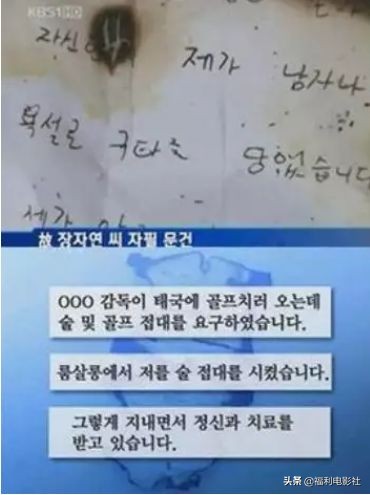 KBS1HD
자신
제가 남자나
욕설로 구타를 당했습니다
제가
故 장자연 씨 자필 문건
OOO 감독이 태국에 골프치러 오는데
술 및 골프 접대를 요구하였습니다.
룸살롱에서 저를 술 접대를 시켰습니다.
그렇게 지내면서 정신과 치료를
받고 있습니다.
头条@福利电影社